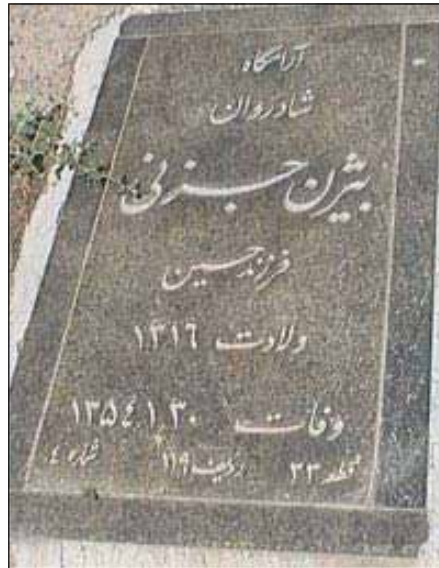 آرامگاه
شادروان
بیژن جزنی
فرزند حسین
ولادت ۱۳۱۶
وفات ۳۰ ۱ ۱۳۵۴
قطعه ۳۳ ردیف ۱۱۹ شماره ٤